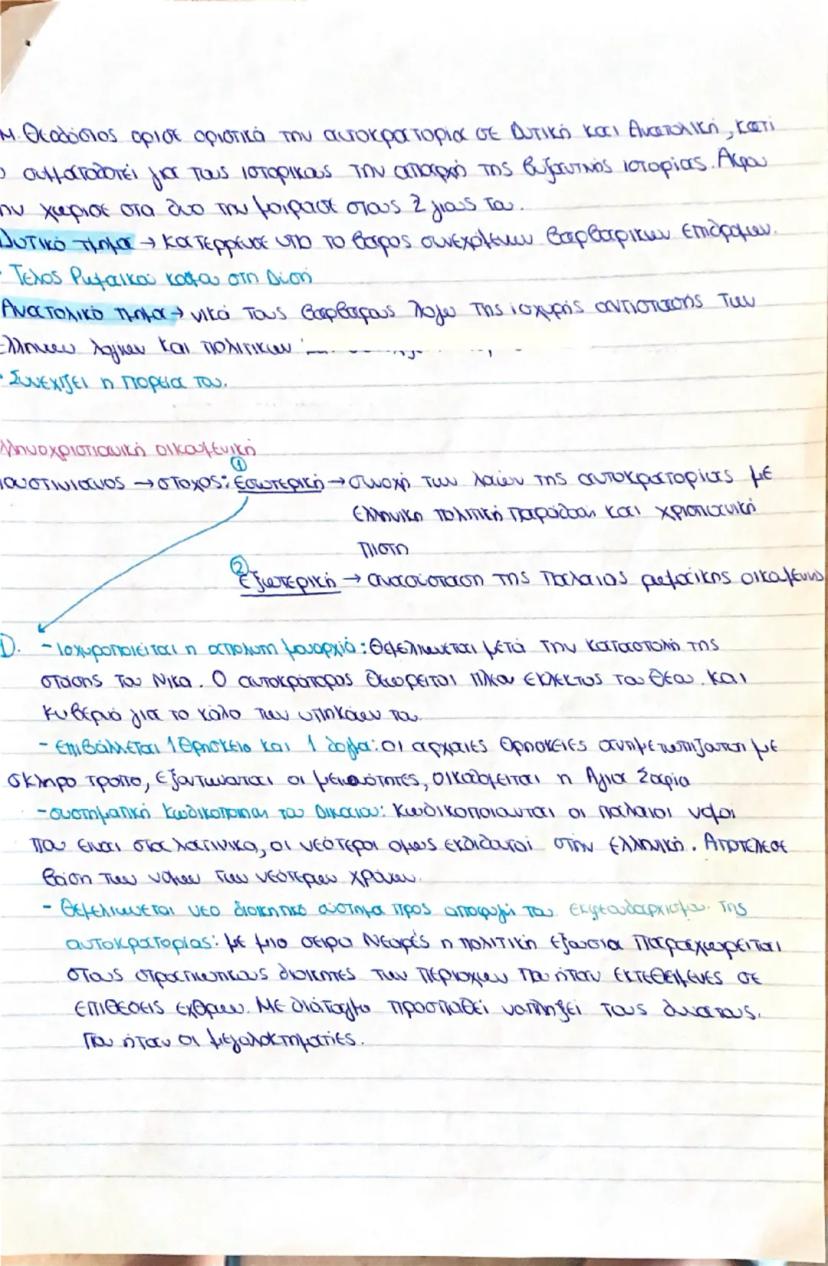 Μ. Θεοδόσιος όρισε οριστικά την αυτοκρατορία σε Δυτική και Ανατολική, κάτι
σηματοδοτεί για τους ιστορικούς την απαρχή της βυζαντινής ιστορίας. Αφου
χώρισε στα δυο την μοίρασε στους 2 γιους του.
Δυτικό τμήμα → κατέρρευσε υπο το βάρος συνεχόμενων βαρβαρικών επιδρομών.
· Τέλος Ρωμαϊκού κόσμου στη Δύση
Ανατολικό τμήμα → νικά τους βαρβάρους λόγω της ισχυρής αντίστασης των
ελλήνων λογίων και πολιτικών
· Συνεχίζει η πορεία του.
λληνοχριστιανική οικουμενική
ιουστινιανος → στόχος: ① Εσωτερική → συνοχή των λαών της αυτοκρατορίας με
ελληνική πολιτική παράδοση και χριστιανική
πίστη
② Εξωτερική → ανασύσταση της παλαιας ρωμαϊκης οικουμένης
①. - Ισχυροποιείται η απόλυτη μοναρχία: Θεμελιώνεται μετά την καταστολή της
στάσης του Νίκα. Ο αυτοκράτορας θεωρείται πλέον εκλεκτός του Θεου και
κυβερνά για το καλό των υπηκόων του
- Επιβάλλεται 1 θρησκεία και 1 δόγμα: οι αρχαίες θρησκείες αντιμετωπίζονται με
σκληρο τρόπο, εξοντώνονται οι μειονότητες, οικοδομείται η Αγια Σοφία
- συστηματική κωδικοποίηση του Δικαιου: Κωδικοποιουνται οι παλαιοι νόμοι
που ειναι στα λατινικα, οι νεότεροι ομως εκδίδονται στην ελληνική. Αποτέλεσε
βάση των νόμων των νεότερων χρόνων.
- Θεμελιώνεται νεο διοικητικο σύστημα προς αποφυγή του εκφεουδαρχισμου της
αυτοκρατορίας: με μια σειρα Νεαρές η πολιτική εξουσια παραχωρείται
στους στρατιωτικους διοικητες των περιοχων που ήταν εκτεθειμένες σε
επιθέσεις εχθρων. Με διάταγμα προσπαθεί να πλήξει τους δυνατους.
που ήταν οι μεγαλοκτηματίες.